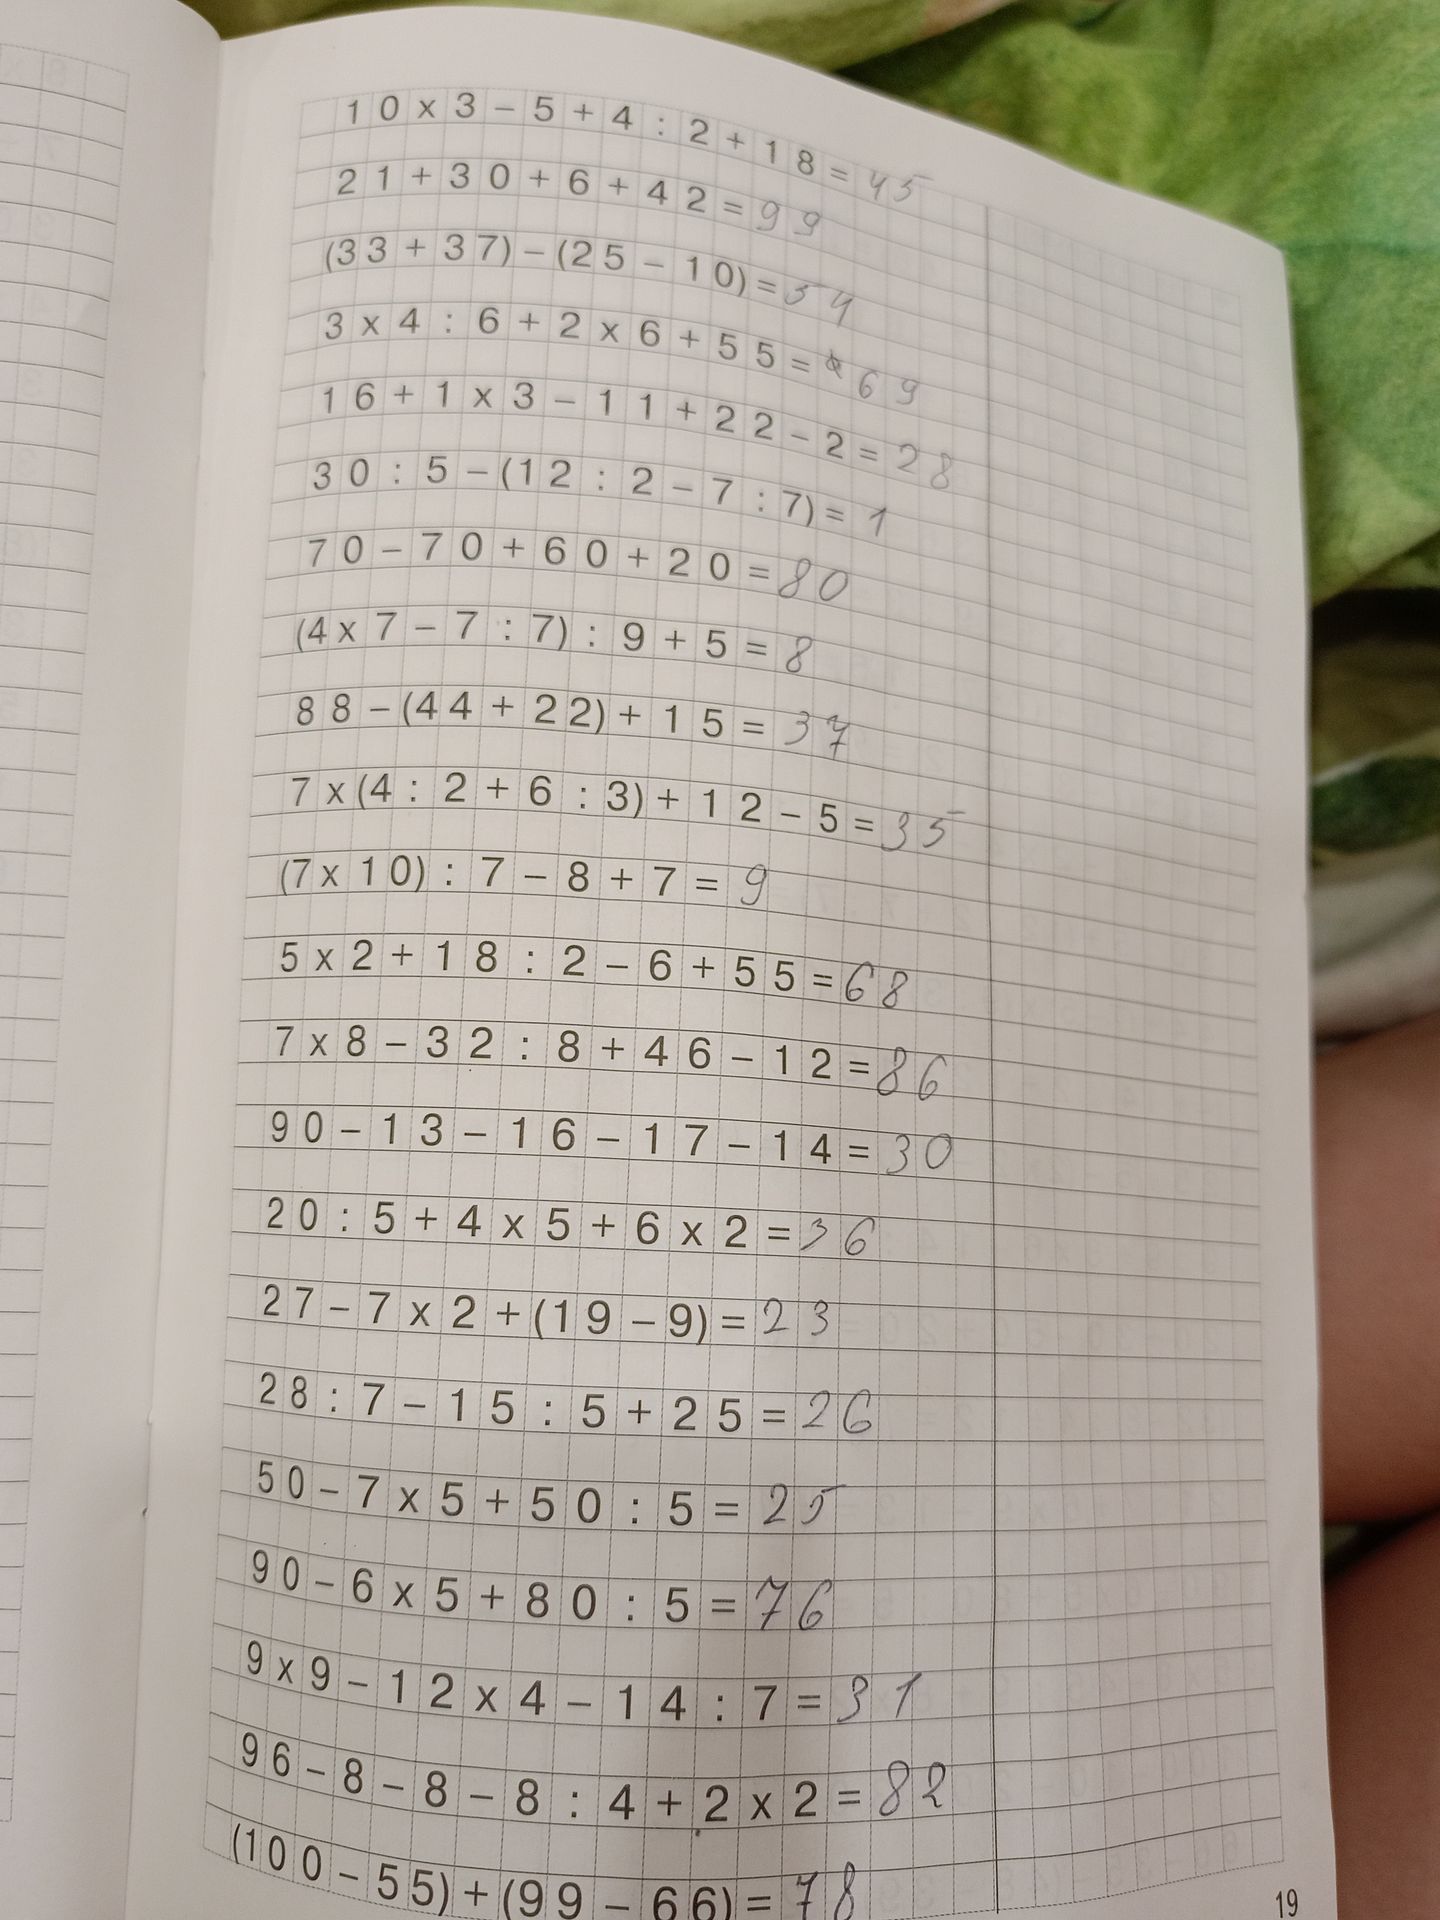 10 x 3 - 5 + 4 : 2 + 18 = 45
21 + 30 + 6 + 42 = 99
(33 + 37) - (25 - 10) = 54
3 x 4 : 6 + 2 x 6 + 55 = 69
16 + 1 x 3 - 11 + 22 - 2 = 28
30 : 5 - (12 : 2 - 7 : 7) = 1
70 - 70 + 60 + 20 = 80
(4 x 7 - 7 : 7) : 9 + 5 = 8
88 - (44 + 22) + 15 = 37
7 x (4 : 2 + 6 : 3) + 12 - 5 = 35
(7 x 10) : 7 - 8 + 7 = 9
5 x 2 + 18 : 2 - 6 + 55 = 68
7 x 8 - 32 : 8 + 46 - 12 = 86
90 - 13 - 16 - 17 - 14 = 30
20 : 5 + 4 x 5 + 6 x 2 = 36
27 - 7 x 2 + (19 - 9) = 23
28 : 7 - 15 : 5 + 25 = 26
50 - 7 x 5 + 50 : 5 = 25
90 - 6 x 5 + 80 : 5 = 76
9 x 9 - 12 x 4 - 14 : 7 = 31
96 - 8 - 8 - 8 : 4 + 2 x 2 = 82
(100 - 55) + (99 - 66) = 78
19